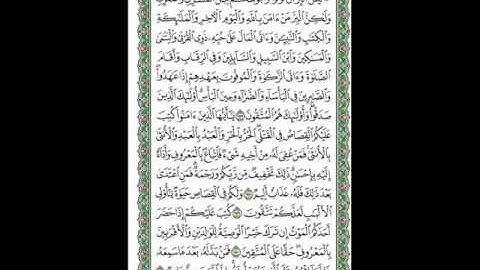 وَلَٰكِنَّ ٱلْبِرَّ مَنْ ءَامَنَ بِٱللَّهِ وَٱلْيَوْمِ ٱلْءَاخِرِ وَٱلْمَلَٰٓئِكَةِ
وَٱلْكِتَٰبِ وَٱلنَّبِيِّۦنَ وَءَاتَى ٱلْمَالَ عَلَىٰ حُبِّهِۦ ذَوِى ٱلْقُرْبَىٰ وَٱلْيَتَٰمَىٰ
وَٱلْمَسَٰكِينَ وَٱبْنَ ٱلسَّبِيلِ وَٱلسَّآئِلِينَ وَفِى ٱلرِّقَابِ وَأَقَامَ
ٱلصَّلَوٰةَ وَءَاتَى ٱلزَّكَوٰةَ وَٱلْمُوفُونَ بِعَهْدِهِمْ إِذَا عَٰهَدُوا۟
وَٱلصَّٰبِرِينَ فِى ٱلْبَأْسَآءِ وَٱلضَّرَّآءِ وَحِينَ ٱلْبَأْسِ أُو۟لَٰٓئِكَ ٱلَّذِينَ
صَدَقُوا۟ وَأُو۟لَٰٓئِكَ هُمُ ٱلْمُتَّقُونَ ١٧٧ يَٰٓأَيُّهَا ٱلَّذِينَ ءَامَنُوا۟ كُتِبَ
عَلَيْكُمُ ٱلْقِصَاصُ فِى ٱلْقَتْلَى ٱلْحُرُّ بِٱلْحُرِّ وَٱلْعَبْدُ بِٱلْعَبْدِ وَٱلْأُنثَىٰ
بِٱلْأُنثَىٰ فَمَنْ عُفِىَ لَهُۥ مِنْ أَخِيهِ شَىْءٌ فَٱتِّبَاعٌۢ بِٱلْمَعْرُوفِ وَأَدَآءٌ
إِلَيْهِ بِإِحْسَٰنٍ ذَٰلِكَ تَخْفِيفٌ مِّن رَّبِّكُمْ وَرَحْمَةٌ فَمَنِ ٱعْتَدَىٰ
بَعْدَ ذَٰلِكَ فَلَهُۥ عَذَابٌ أَلِيمٌ ١٧٨ وَلَكُمْ فِى ٱلْقِصَاصِ حَيَوٰةٌ يَٰٓأُو۟لِى
ٱلْأَلْبَٰبِ لَعَلَّكُمْ تَتَّقُونَ ١٧٩ كُتِبَ عَلَيْكُمْ إِذَا حَضَرَ
أَحَدَكُمُ ٱلْمَوْتُ إِن تَرَكَ خَيْرًا ٱلْوَصِيَّةُ لِلْوَٰلِدَيْنِ وَٱلْأَقْرَبِينَ
بِٱلْمَعْرُوفِ حَقًّا عَلَى ٱلْمُتَّقِينَ ١٨٠ فَمَنۢ بَدَّلَهُۥ بَعْدَ مَا سَمِعَهُۥ